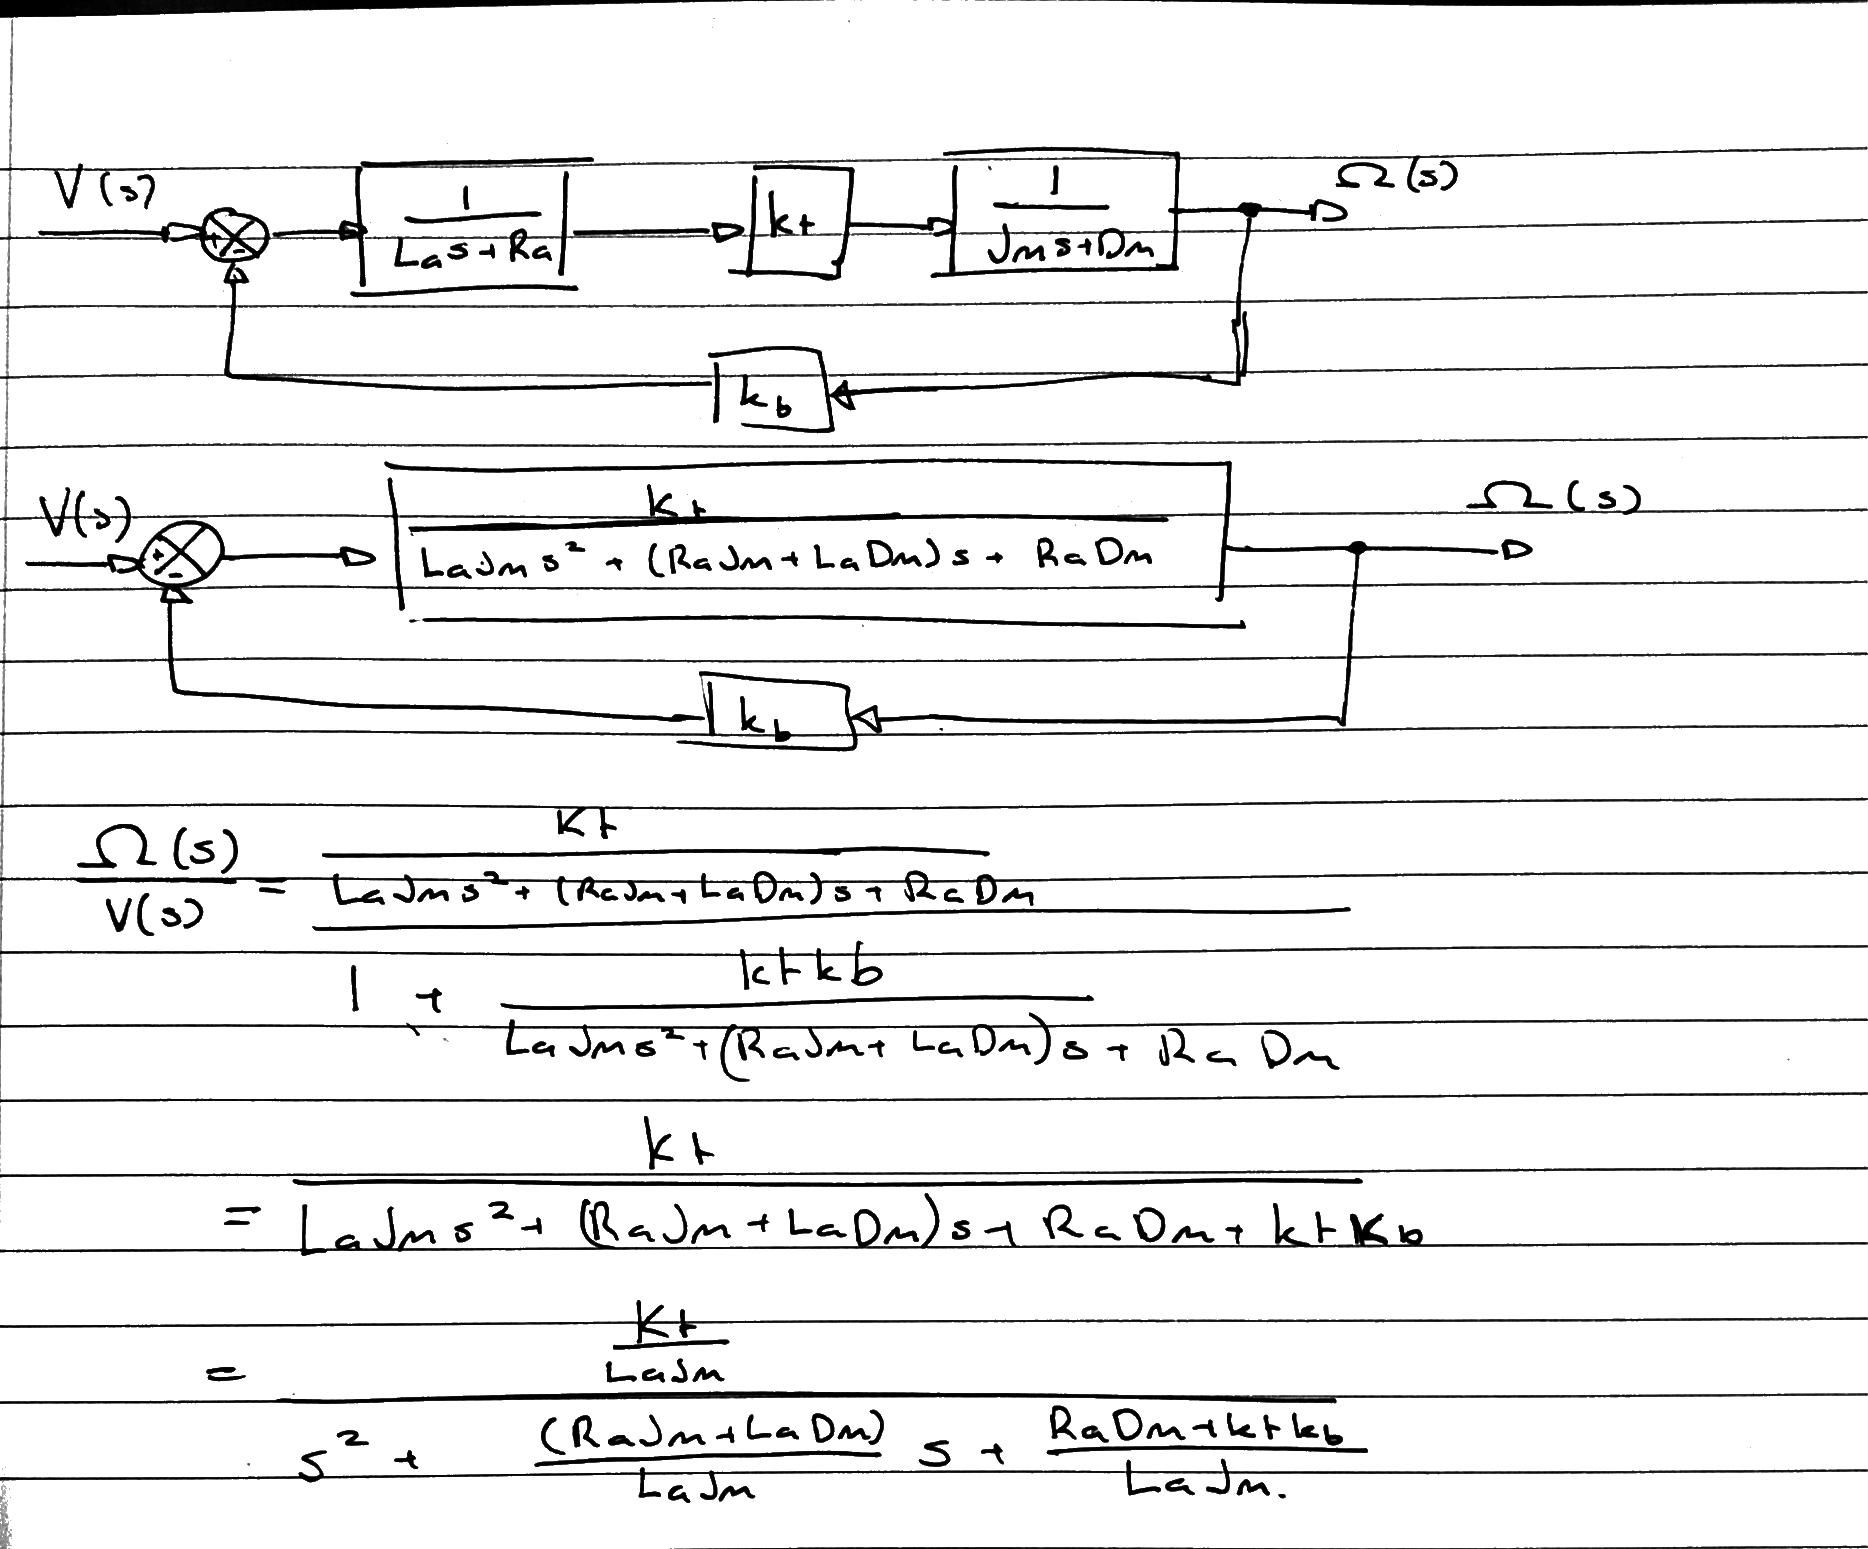 V(s) + - 1 / Las+Ra kt 1 / Jms+Dm Ω(s)
kb
V(s) + - Kt / LaJms² + (RaJm+LaDm)s + RaDm Ω(s)
kb
Ω(s) / V(s) = Kt / LaJms² + (RaJm+LaDm)s + RaDm
1 + ktkb / LaJms² + (RaJm + LaDm)s + RaDm
= kt / LaJms² + (RaJm + LaDm)s + RaDm + ktKb
= Kt / LaJm
s² + (RaJm+LaDm) / LaJm s + RaDm+ktkb / LaJm.